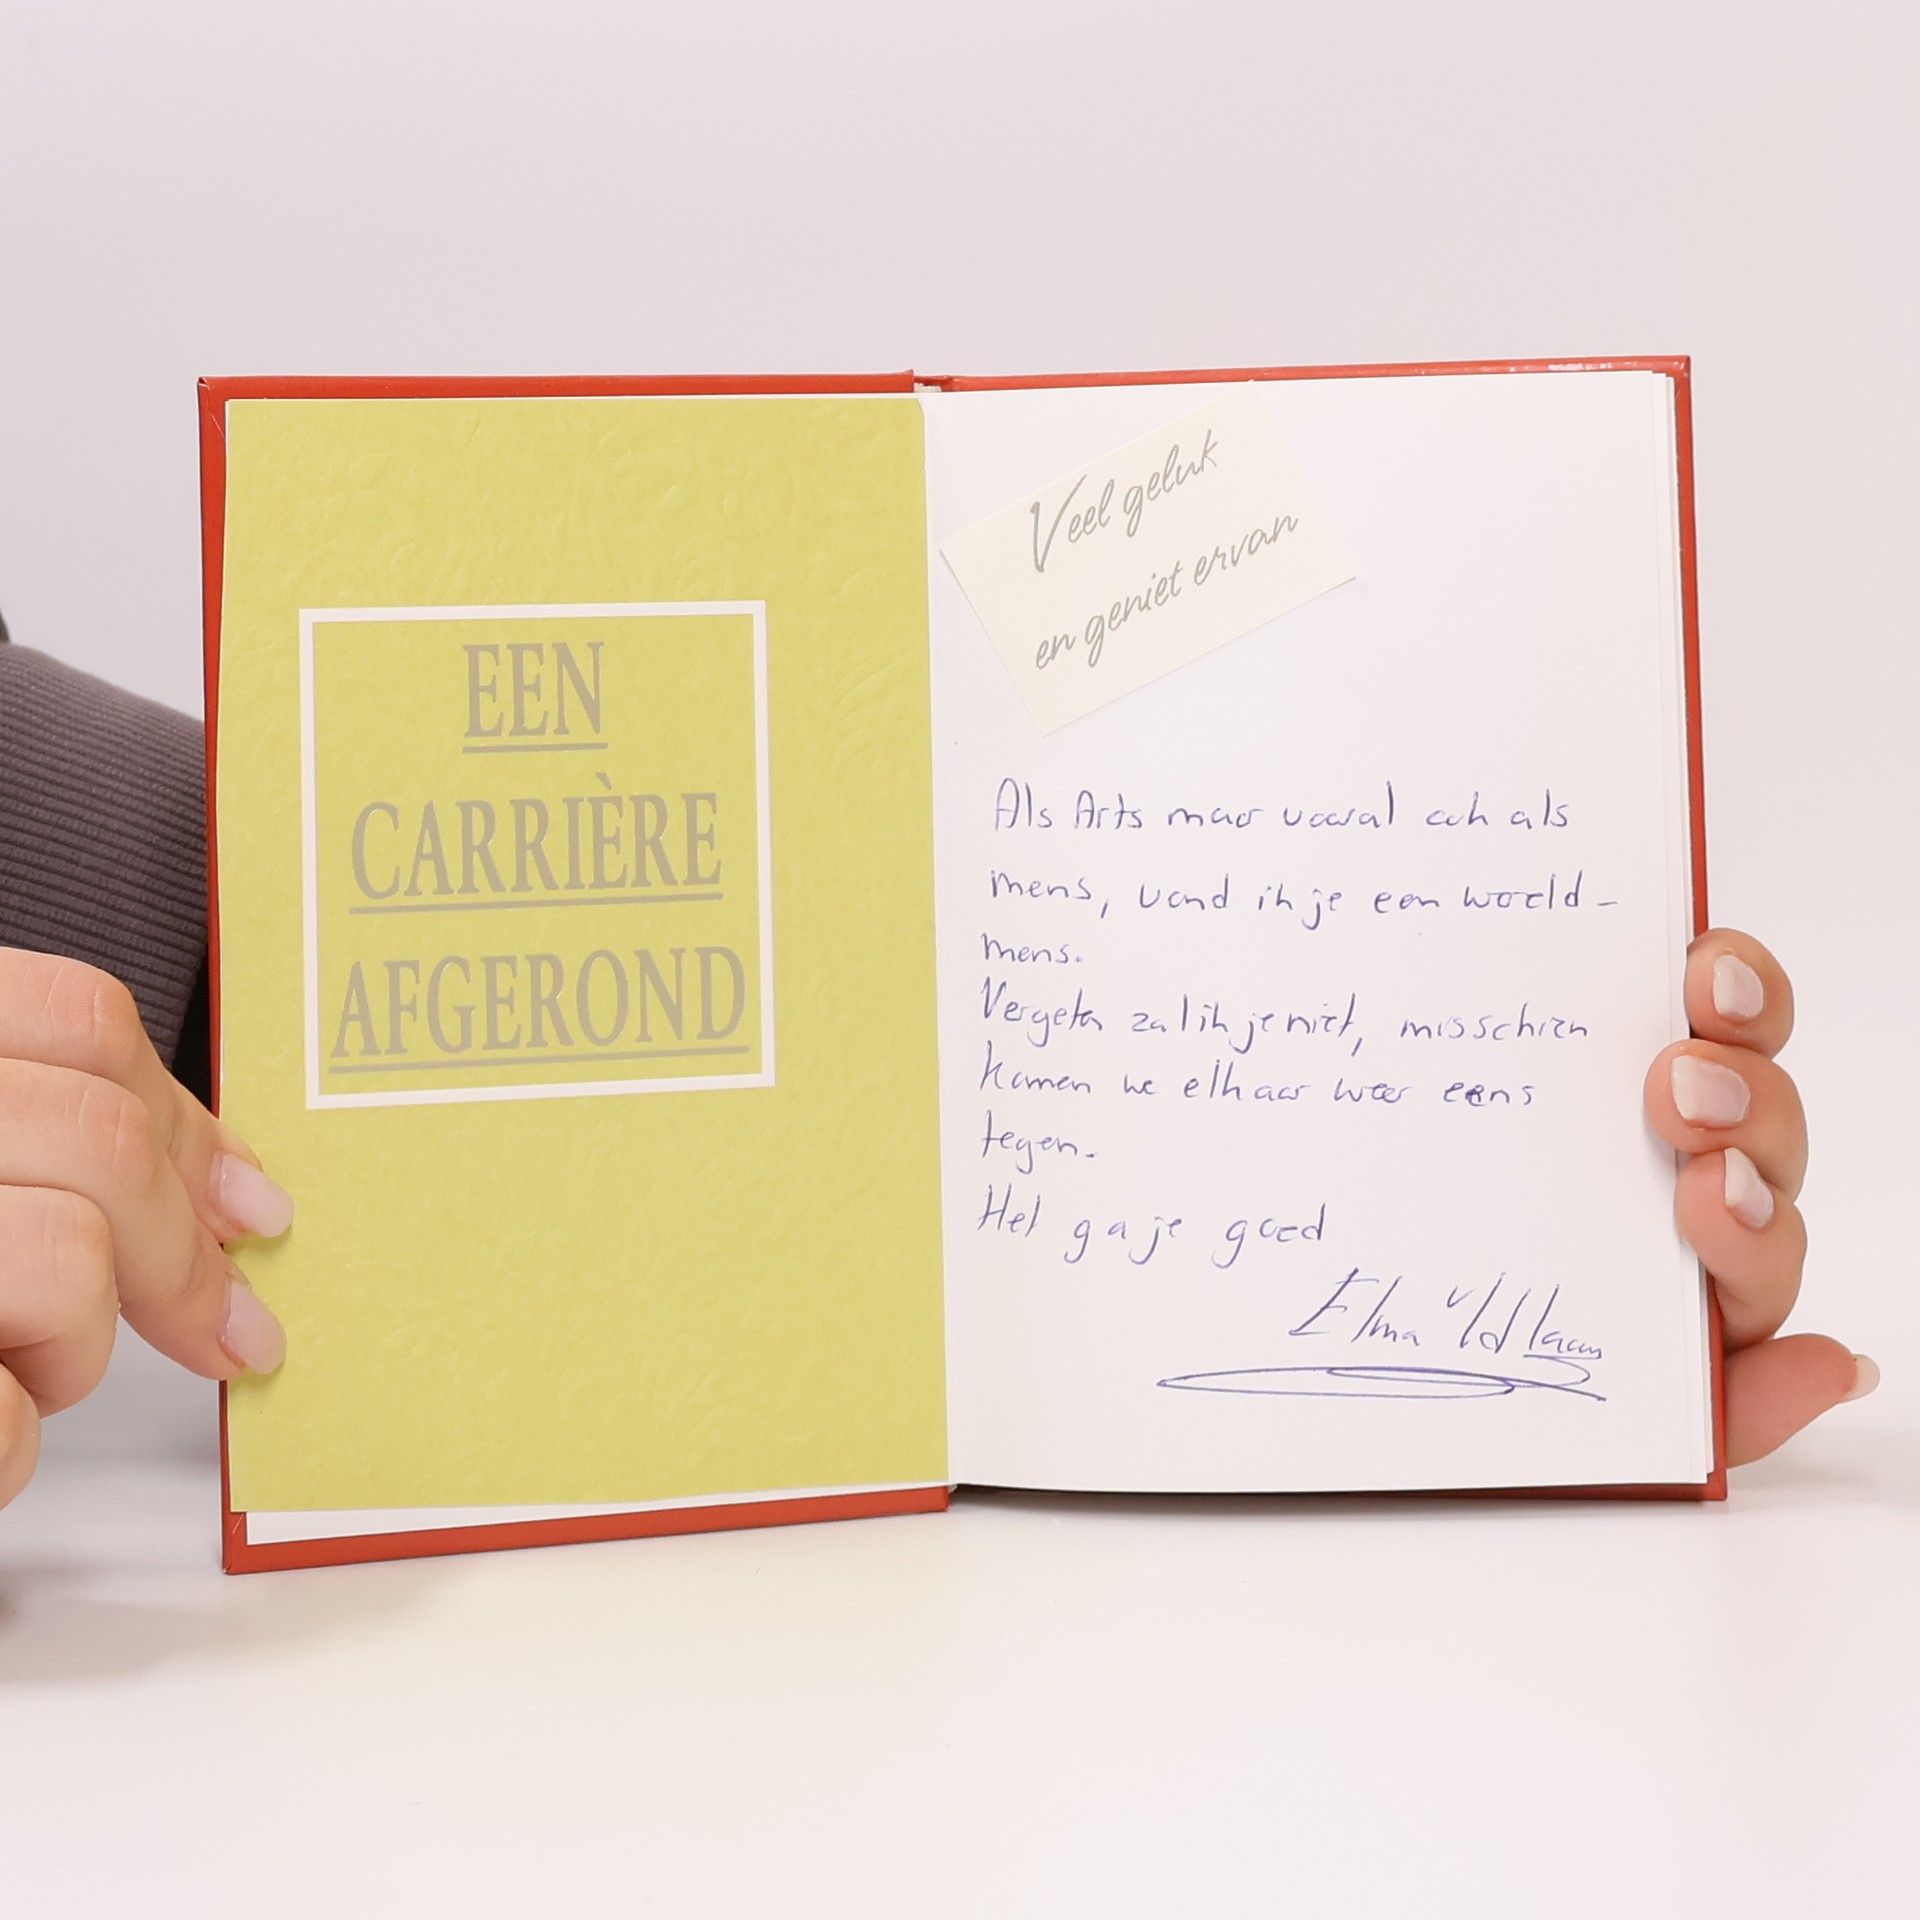 EEN
CARRIÈRE
AFGEROND
Veel geluk
en geniet ervan
Als Arts maar vooral ook als
mens, vond ik je een wereld-
mens.
Vergeten zal ik je niet, misschien
komen we elkaar weer eens
tegen.
Het ga je goed
Elma